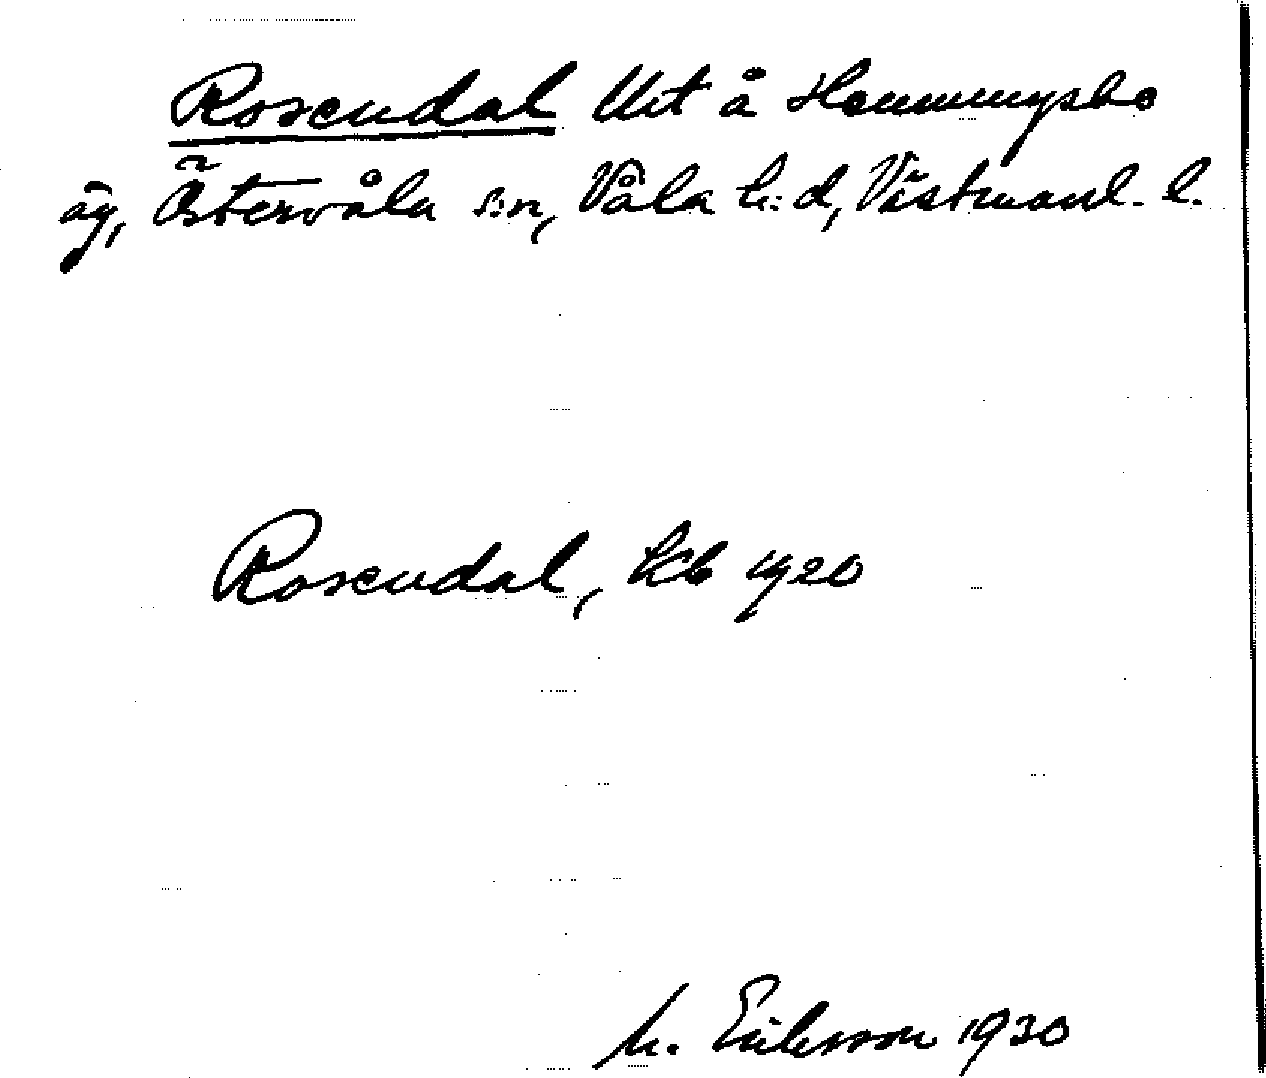 Rosendal Utt å Hemmingsbo
äg, Östervåla s:n, Våla h:d, Västmanl. l.
Rosendal, kb 1920
M. Eriksson 1930